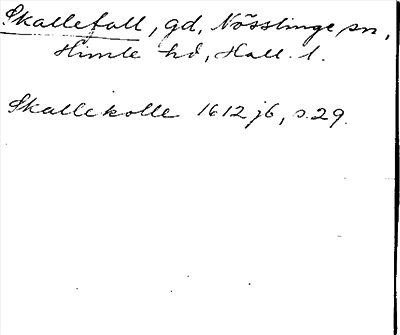 Skallefall, gd, Nösslinge sn,
Himle hd, Hall. l.
Skallekolle 1612 jb, s. 29.